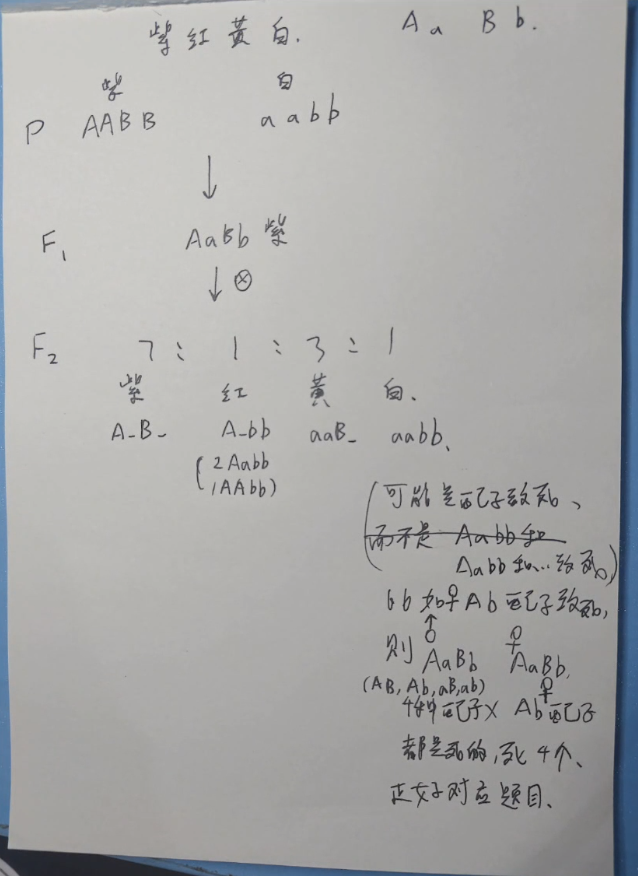 紫 红 黄 白. Aa Bb.
紫 白
P AABB aabb
↓
F₁ AaBb 紫
↓ⓧ
F₂ 7 : 1 : 3 : 1
紫 红 黄 白.
A-B- A-bb aaB- aabb.
(2Aabb
1AAbb)
(可能是配子致死、
而不是 Aabb和
Aabb和...致死)
bb如♀Ab配子致死,
则 ♂AaBb ♀AaBb.
(AB, Ab, aB, ab)
4种配子× ♀Ab配子
都是死的,死4个、
正好对应题目.